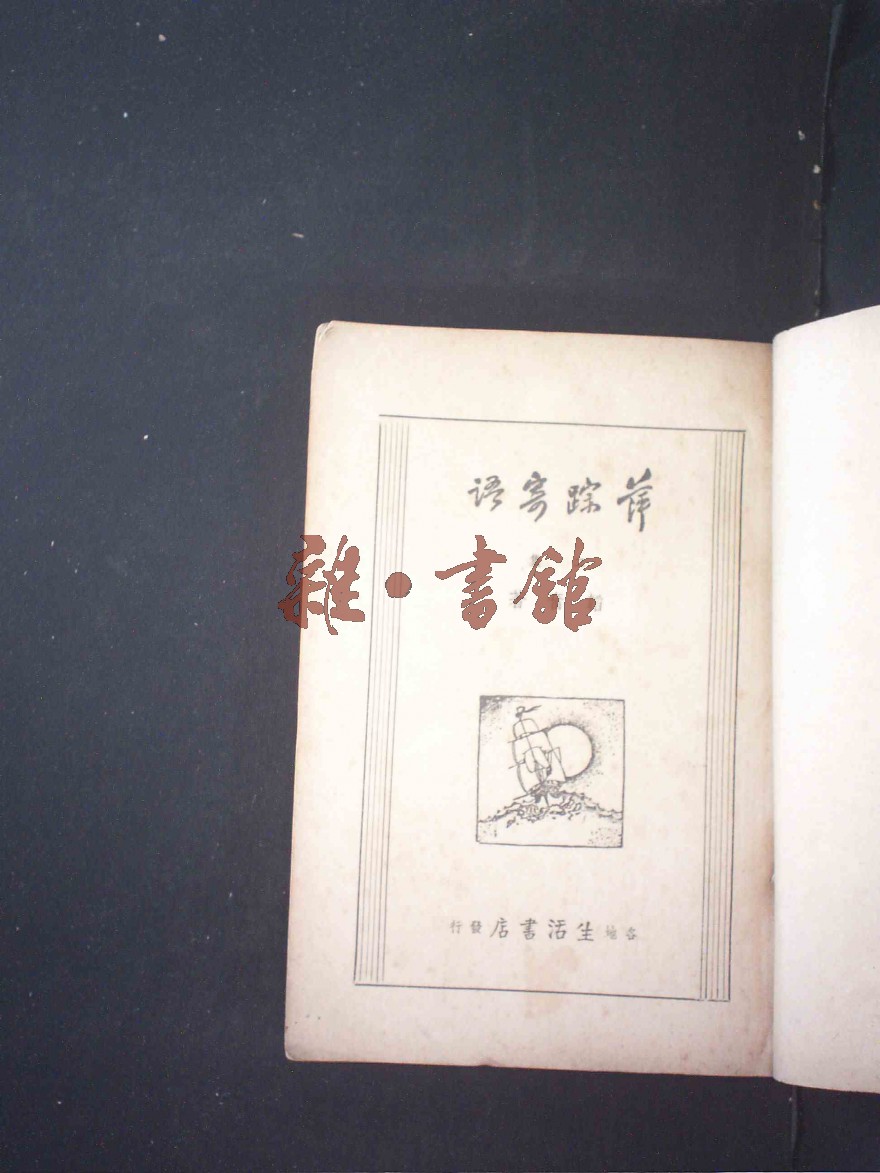 萍踪寄語
雜·書館
各地生活書店發行